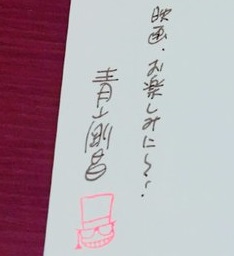 映画、お楽しみに〜!
青山剛昌